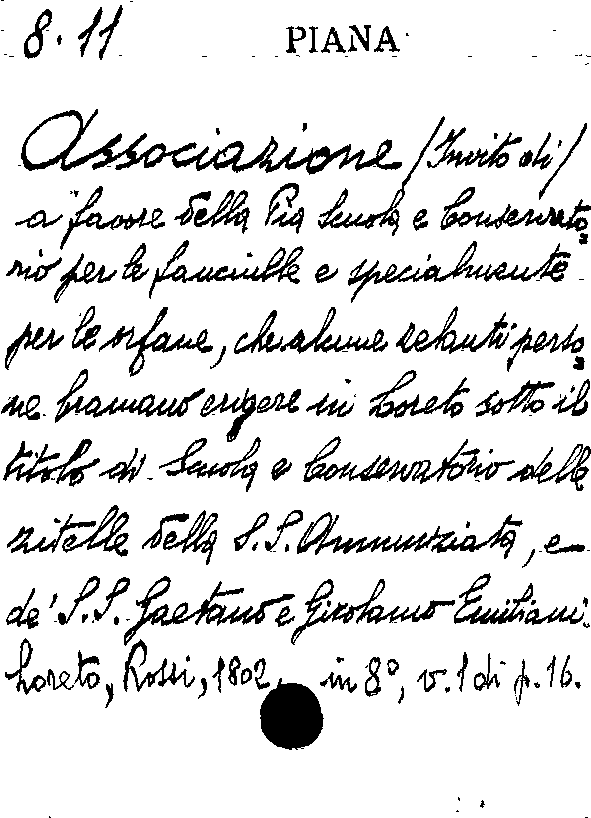 8.11 PIANA
Associazione /Invito di/
a favore della Pia Scuola e Conservato=
rio per le fanciulle e specialmente
per le orfane, che alcune zelanti perso=
ne bramano erigere in Loreto sotto il
titolo di Scuola e Conservatorio delle
zitelle della S.S. Annunziata, e
de' S.S. Gaetano e Girolamo Emiliani.
Loreto, Rossi, 1802, in 8°, v. 1 di p. 16.